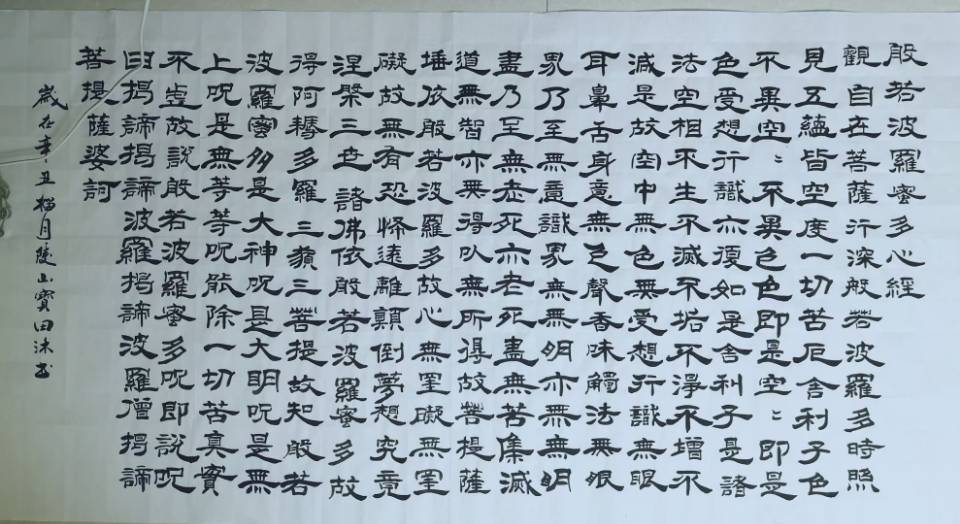 般若波羅蜜多心經
觀自在菩薩行深般若波羅多時照
見五蘊皆空度一切苦厄舍利子色
不異空〻不異色色即是空〻即是
色受想行識亦復如是舍利子是諸
法空相不生不滅不垢不淨不增不
減是故空中無色無受想行識無眼
耳鼻舌身意無色聲香味觸法無眼
界乃至無意識界無無明亦無無明
盡乃至無老死亦老死盡無苦集滅
道無智亦無得以無所得故菩提薩
埵依般若波羅多故心無罣礙無罣
礙故無有恐怖遠離顛倒夢想究竟
涅槃三世諸佛依般若波羅蜜多故
得阿耨多羅三藐三菩提故知般若
波羅蜜多是大神呪是大明呪是無
上呪是無等等呪能除一切苦真實
不虛故說般若波羅蜜多呪即說呪
曰揭諦揭諦波羅揭諦波羅僧揭諦
菩提薩婆訶
歲在辛丑榴月陵山寶田沐書